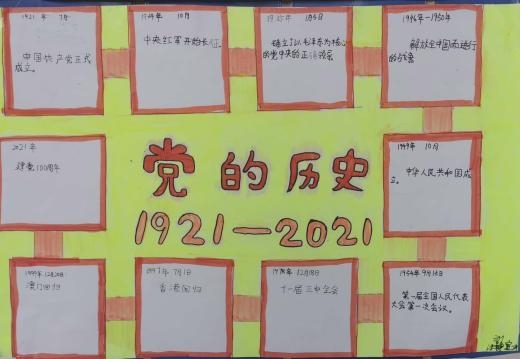 1921 年 7月
中国共产党正式
成立。
1934年 10月
中央红军开始长征。
1935年 1月5日
确立了以毛泽东为核心
的党中央的正确领导
1946年-1950年
解放全中国而进行
的战争
1949年 10月
中华人民共和国成
立。
1954年9月15日
第一届全国人民代表
大会第一次会议。
1978年12月18日
十一届三中全会
1997年7月1日
香港回归
1999年12月20日
澳门回归
2021年
建党100周年
党的历史
1921—2021